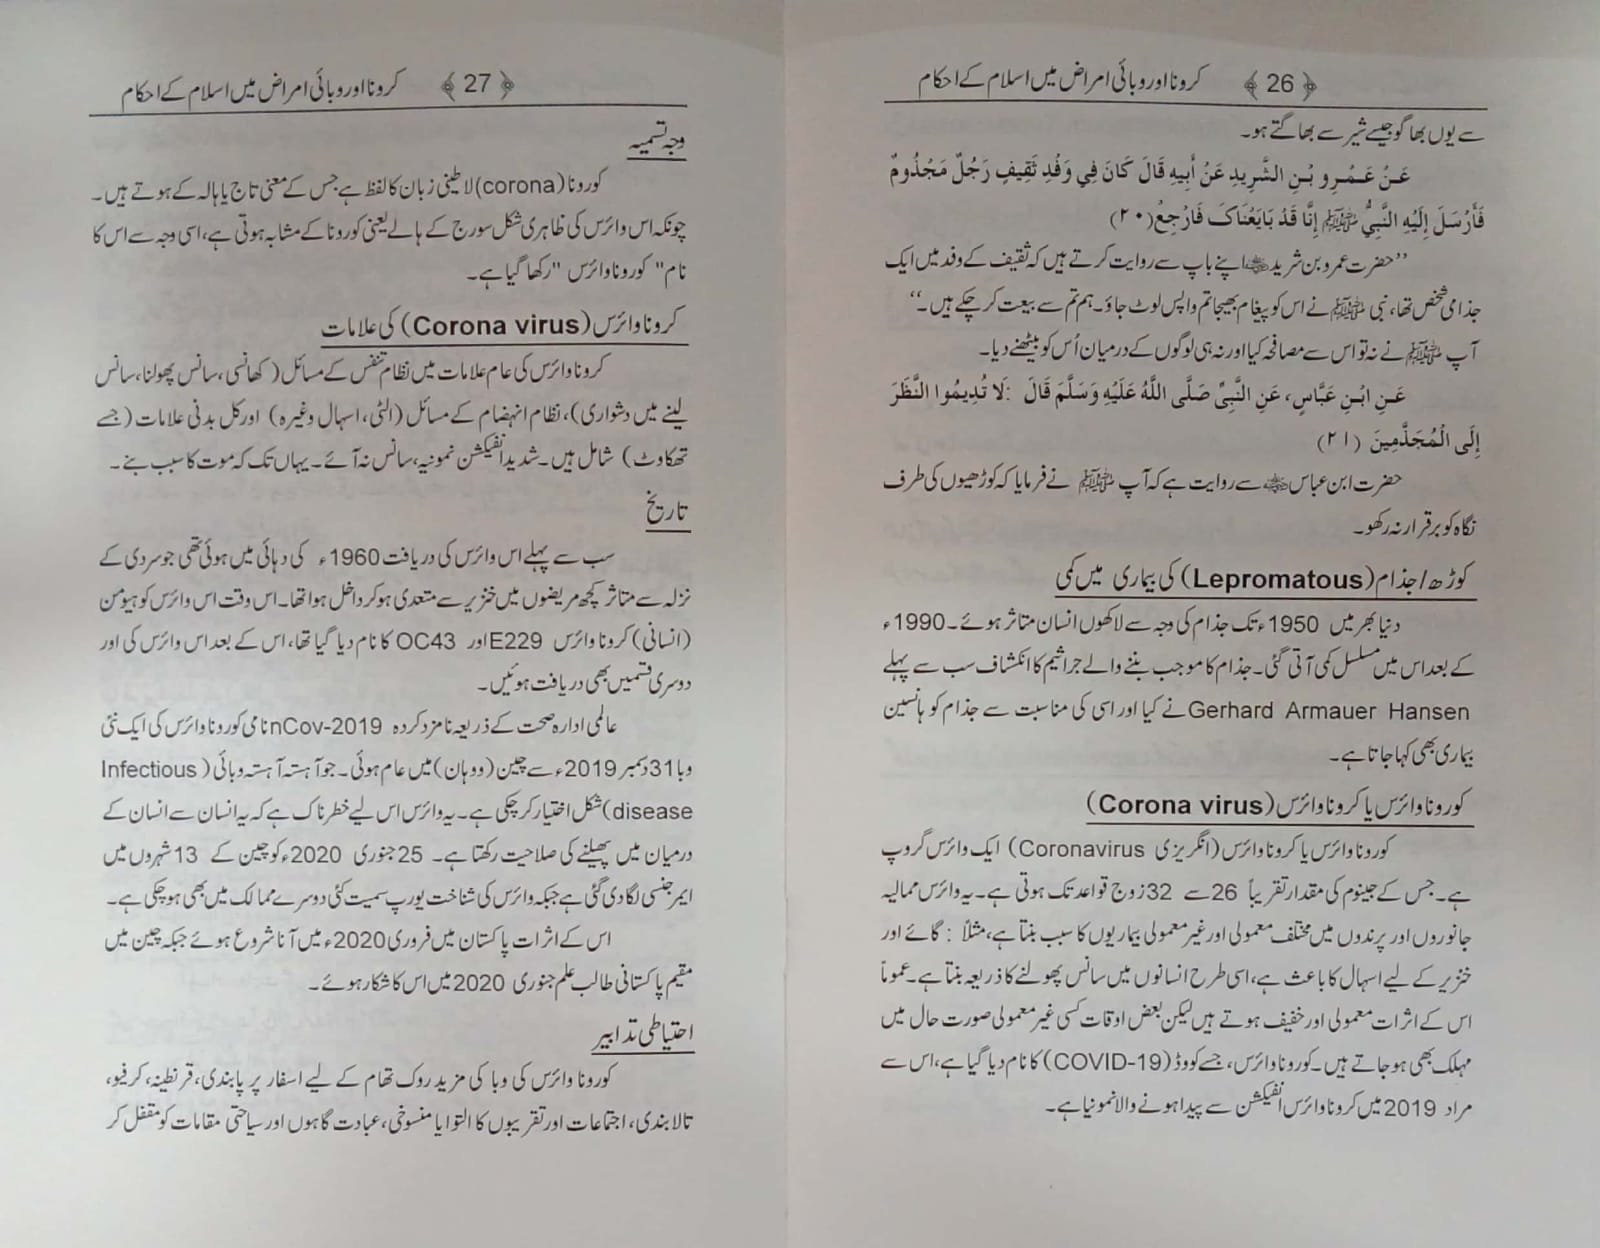 ﴿26﴾ کرونا اور وبائی امراض میں اسلام کے احکام
سے یوں بھاگو جیسے شیر سے بھاگتے ہو۔
عَنْ عَمْرِو بْنِ الشَّرِيدِ عَنْ أَبِيهِ قَالَ كَانَ فِي وَفْدِ ثَقِيفٍ رَجُلٌ مَجْذُومٌ
فَأَرْسَلَ إِلَيْهِ النَّبِيُّ ﷺ إِنَّا قَدْ بَايَعْنَاكَ فَارْجِعْ (۲۰)
’’حضرت عمرو بن شرید رضی اللہ عنہ اپنے باپ سے روایت کرتے ہیں کہ ثقیف کے وفد میں ایک
جذامی شخص تھا، نبی ﷺ نے اس کو پیغام بھیجا تم واپس لوٹ جاؤ۔ ہم تم سے بیعت کر چکے ہیں۔‘‘
آپ ﷺ نے نہ تو اس سے مصافحہ کیا اور نہ ہی لوگوں کے درمیان اُس کو بیٹھنے دیا۔
عَنِ ابْنِ عَبَّاسٍ، عَنِ النَّبِيِّ صَلَّى اللَّهُ عَلَيْهِ وَسَلَّمَ قَالَ :لَا تُدِيمُوا النَّظَرَ
إِلَى الْمُجَذَّمِينَ (۲۱)
حضرت ابن عباس رضی اللہ عنہ سے روایت ہے کہ آپ ﷺ نے فرمایا کہ کوڑھیوں کی طرف
نگاہ کو برقرار نہ رکھو۔
کوڑھ/جذام (Lepromatous) کی بیماری میں کمی
دنیا بھر میں 1950ء تک جذام کی وجہ سے لاکھوں انسان متاثر ہوئے۔ 1990ء
کے بعد اس میں مسلسل کمی آتی گئی۔ جذام کا موجب بننے والے جراثیم کا انکشاف سب سے پہلے
Gerhard Armauer Hansen نے کیا اور اسی کی مناسبت سے جذام کو ہانسین
بیماری بھی کہا جاتا ہے۔
کورونا وائرس یا کرونا وائرس (Corona virus)
کورونا وائرس یا کرونا وائرس (انگریزی Coronavirus) ایک وائرس گروپ
ہے۔ جس کے جینوم کی مقدار تقریباً 26 سے 32 زوج قواعد تک ہوتی ہے۔ یہ وائرس ممالیہ
جانوروں اور پرندوں میں مختلف معمولی اور غیر معمولی بیماریوں کا سبب بنتا ہے، مثلاً : گائے اور
خنزیر کے لیے اسہال کا باعث ہے، اسی طرح انسانوں میں سانس پھولنے کا ذریعہ بنتا ہے۔ عموماً
اس کے اثرات معمولی اور خفیف ہوتے ہیں لیکن بعض اوقات کسی غیر معمولی صورت حال میں
مہلک بھی ہو جاتے ہیں۔ کورونا وائرس، جسے کووڈ (COVID-19) کا نام دیا گیا ہے، اس سے
مراد 2019 میں کرونا وائرس انفیکشن سے پیدا ہونے والا نمونیا ہے۔
﴿27﴾ کرونا اور وبائی امراض میں اسلام کے احکام
وجہ تسمیہ
کورونا (corona) لاطینی زبان کا لفظ ہے جس کے معنی تاج یا ہالہ کے ہوتے ہیں۔
چونکہ اس وائرس کی ظاہری شکل سورج کے ہالے یعنی کورونا کے مشابہ ہوتی ہے، اسی وجہ سے اس کا
نام" کورونا وائرس "رکھا گیا ہے۔
کرونا وائرس (Corona virus) کی علامات
کرونا وائرس کی عام علامات میں نظام تنفس کے مسائل (کھانسی، سانس پھولنا، سانس
لینے میں دشواری)، نظام انہضام کے مسائل (الٹی، اسہال وغیرہ) اور کل بدنی علامات (جسے
تھکاوٹ) شامل ہیں۔ شدید انفیکشن نمونیہ، سانس نہ آئے۔ یہاں تک کہ موت کا سبب بنے۔
تاریخ
سب سے پہلے اس وائرس کی دریافت 1960ء کی دہائی میں ہوئی تھی جو سردی کے
نزلہ سے متاثر کچھ مریضوں میں خنزیر سے متعدی ہو کر داخل ہوا تھا۔ اس وقت اس وائرس کو ہیومن
(انسانی) کرونا وائرس E229 اور OC43 کا نام دیا گیا تھا، اس کے بعد اس وائرس کی اور
دوسری قسمیں بھی دریافت ہوئیں۔
عالمی ادارہ صحت کے ذریعہ نامزد کردہ nCov-2019 نامی کورونا وائرس کی ایک نئی
وبا 31 دسمبر 2019ء سے چین (ووہان) میں عام ہوئی۔ جو آہستہ آہستہ وبائی (Infectious
disease) شکل اختیار کر چکی ہے۔ یہ وائرس اس لیے خطرناک ہے کہ یہ انسان سے انسان کے
درمیان میں پھیلنے کی صلاحیت رکھتا ہے۔ 25 جنوری 2020ء کو چین کے 13 شہروں میں
ایمرجنسی لگا دی گئی ہے جبکہ وائرس کی شناخت یورپ سمیت کئی دوسرے ممالک میں بھی ہو چکی ہے۔
اس کے اثرات پاکستان میں فروری 2020ء میں آنا شروع ہوئے جبکہ چین میں
مقیم پاکستانی طالب علم جنوری 2020 میں اس کا شکار ہوئے۔
احتیاطی تدابیر
کورونا وائرس کی وبا کی مزید روک تھام کے لیے اسفار پر پابندی، قرنطینہ، کرفیو،
تالا بندی، اجتماعات اور تقریبوں کا التوا یا منسوخی، عبادت گاہوں اور سیاحتی مقامات کو مقفل کر